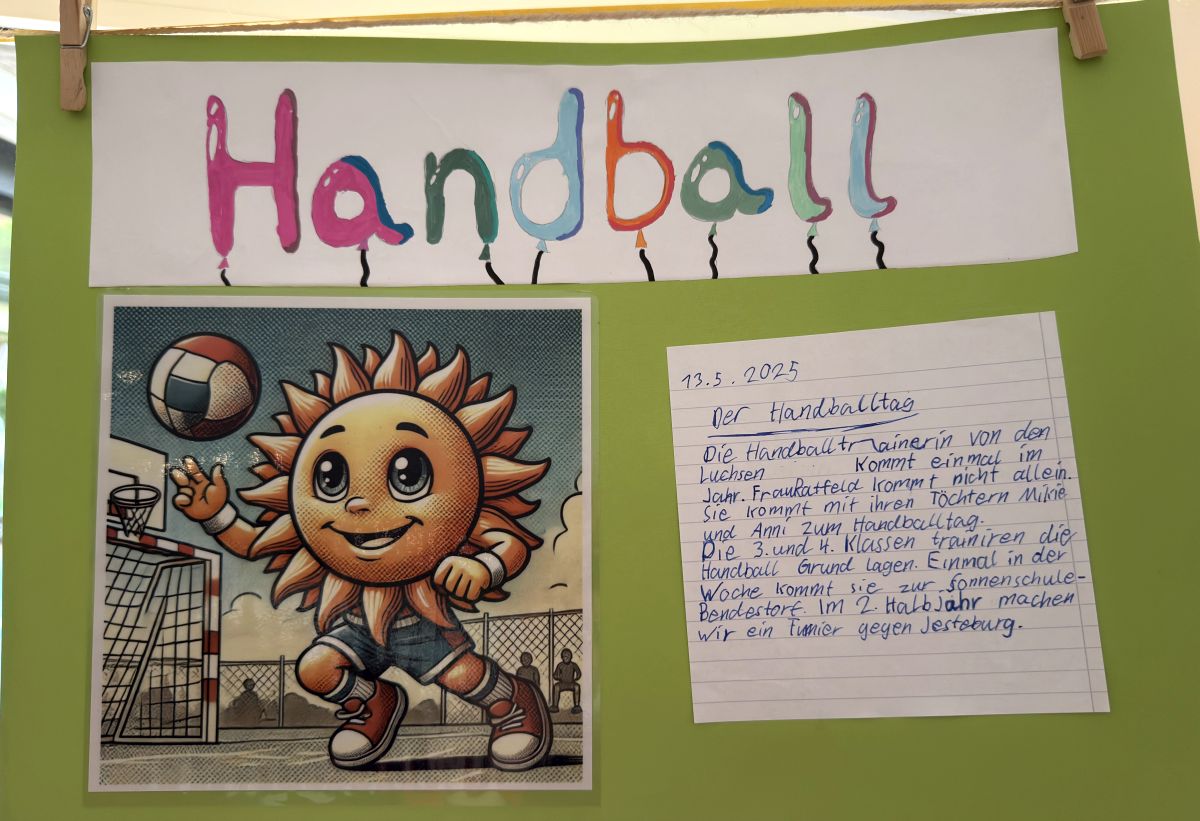 Handball
13.5.2025
Der Handballtag
Die Handballtrainerin von den
Luchsen kommt einmal im
Jahr. Frau Ratfeld kommt nicht allein.
Sie kommt mit ihren Töchtern Mikie
und Anni zum Handballtag.
Die 3. und 4. Klassen trainiren die
Handball Grund lagen. Einmal in der
Woche kommt sie zur Sonnenschule-
Bendestorf. Im 2. Halbjahr machen
wir ein Turnier gegen Jesteburg.